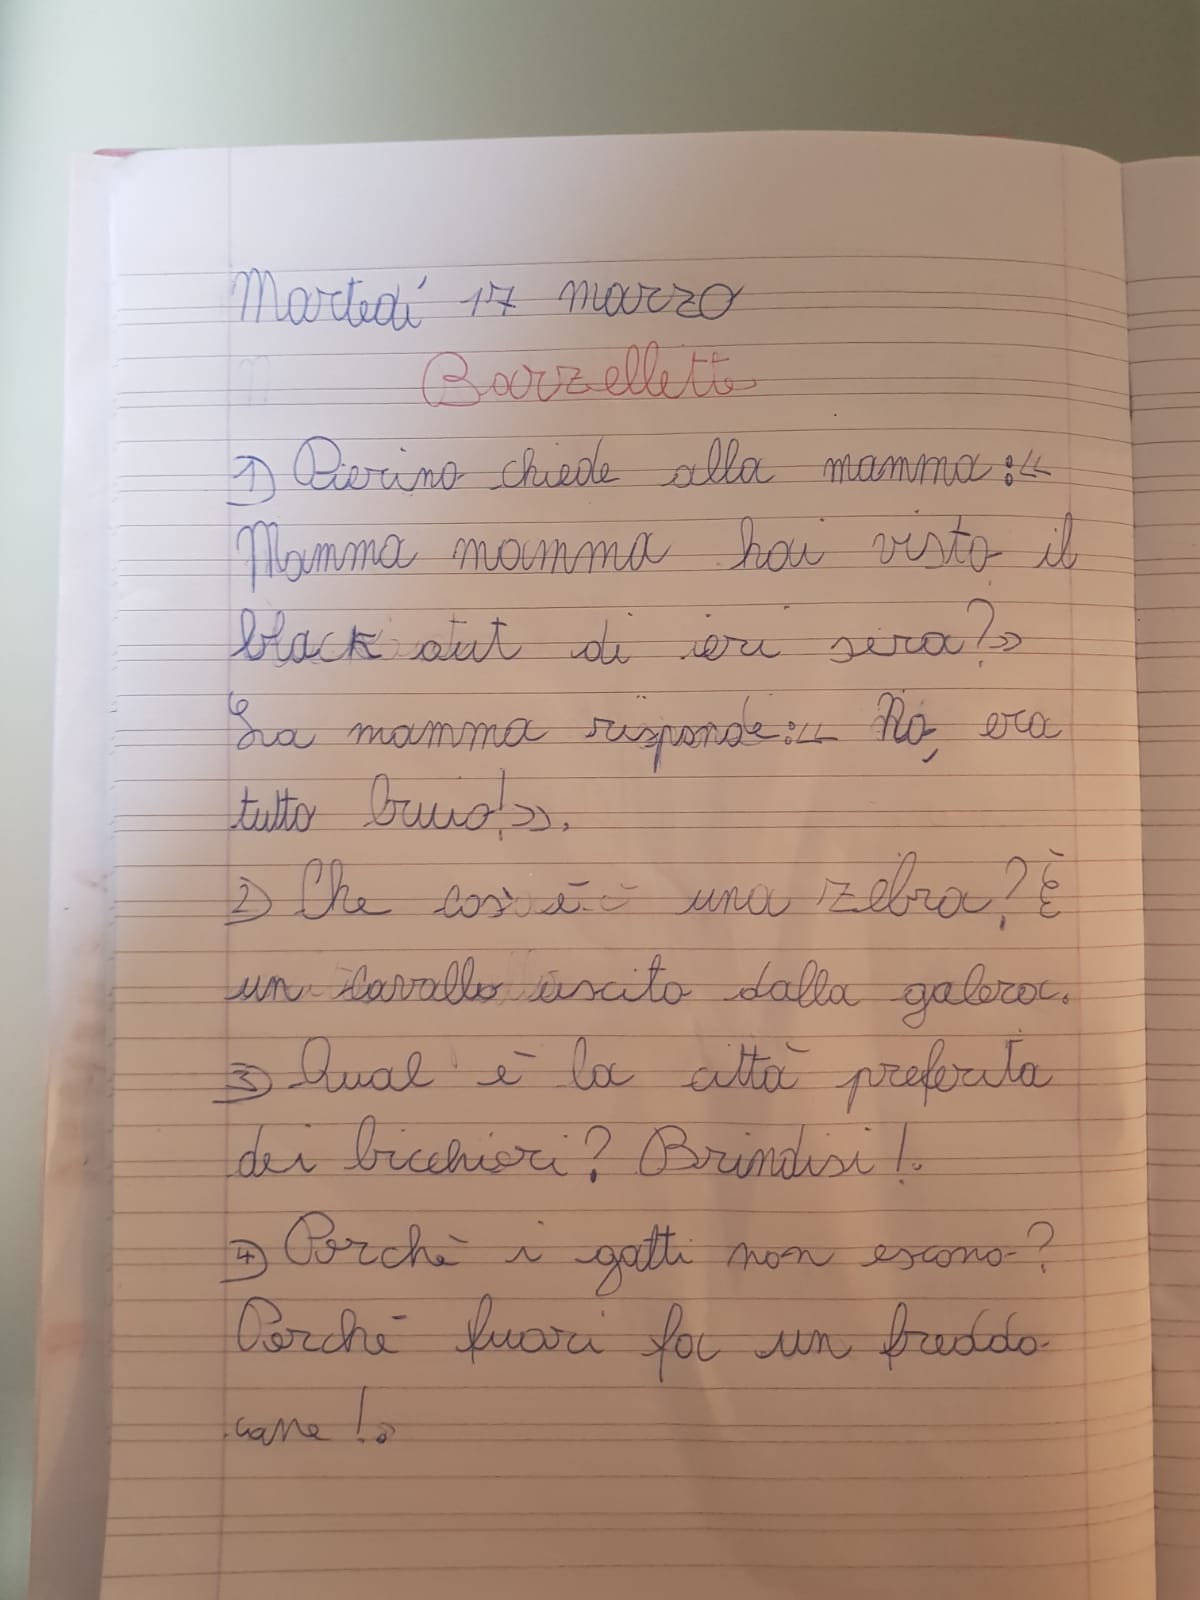 Martedí 17 marzo
Barzellette
1) Pierino chiede alla mamma:«
Mamma mamma hai visto il
black out di ieri sera?»
La mamma risponde:« No, era
tutto buio!».
2) Che cos'è una zebra? È
un cavallo uscito dalla galera.
3) Qual è la città preferita
dei bicchieri? Brindisi!.
4) Perchè i gatti non escono?
Perchè fuori fa un freddo
cane!.